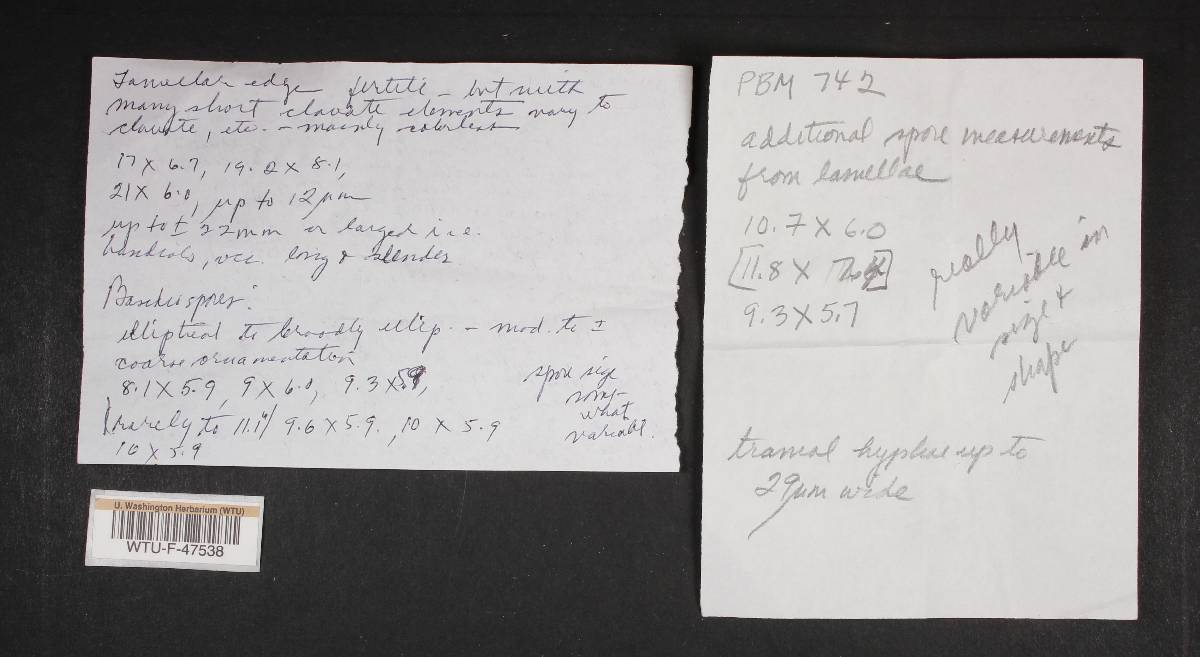 Lamellar edge fertile - but with
many short clavate elements vary to
clavate, etc. - mainly colorless
17 X 6.7, 19.2 X 8.1,
21 X 6.0, up to 12 µm
up to ± 22 mm or larged i.e.
long & slender
Basidiospores:
elliptical to broadly ellip. - mod. to ±
coarse ornamentation
8.1 X 5.9, 9 X 6.0, 9.3 X 5.9,
(rarely to 11.1µ) 9.6 X 5.9, 10 X 5.9
10 X 5.9
spore size
some-
what
variabl.
U. Washington Herbarium (WTU)
WTU-F-47538
PBM 742
additional spore measurements
from lamellae
10.7 X 6.0
[11.8 X
9.3 X 5.7
really
variable in
size &
shape
tramal hyphae up to
29µm wide